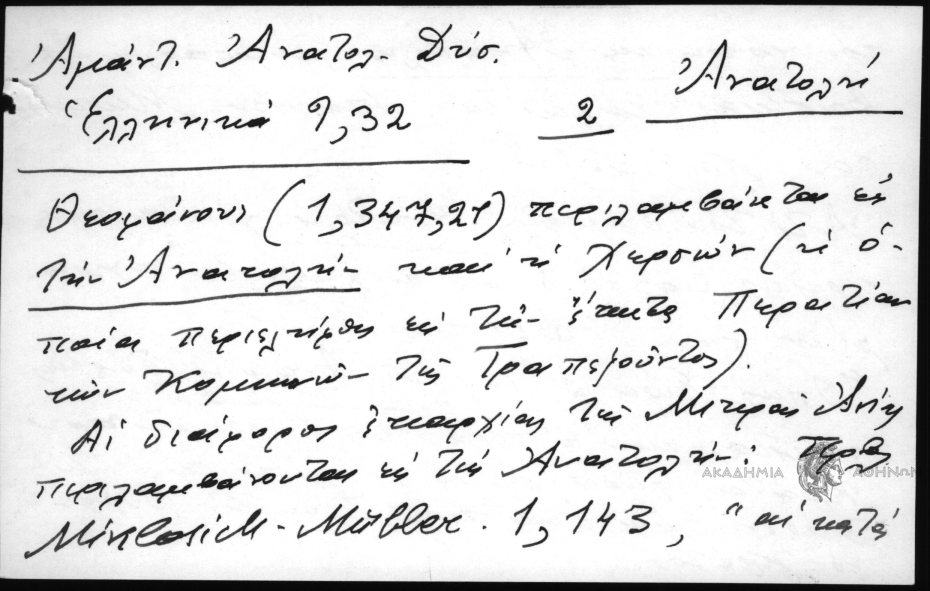 Ἀμάντ. Ἀνατολ. Δύσ.
Ἀνατολή
Ἑλληνικά 9,32
2
Θεοφάνους (1,347,21) περιλαμβάνεται εἰς
τήν Ἀνατολήν καί ἡ Χερσών (ἡ ὁ-
ποία περιελήφθη εἰς τήν ἔπειτα Περατείαν
τῶν Κομνηνῶν τῆς Τραπεζοῦντος).
Αἱ διάφοροι ἐπαρχίαι τῆς Μικρᾶς Ἀσίας
περιλαμβάνονται εἰς τήν Ἀνατολήν: Πρβ
Miklosich-Müller. 1,143, "αἱ κατά
ΑΚΑΔΗΜΙΑ ΑΘΗΝΩΝ